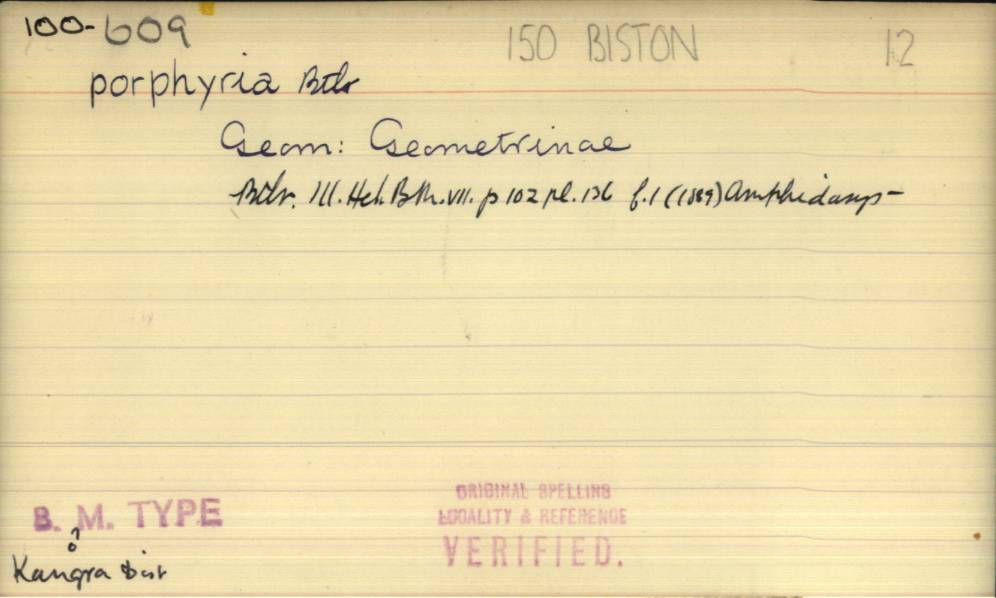 100-609 150 BISTON 12
porphyria Btlr
Geom: Geometrinae
Btlr. Ill. Het. B.M. VII. p 102 pl. 136 f.1 (1889) Amphidasys -
B. M. TYPE
♂
Kangra Dist
ORIGINAL SPELLING
LOCALITY & REFERENCE
VERIFIED.